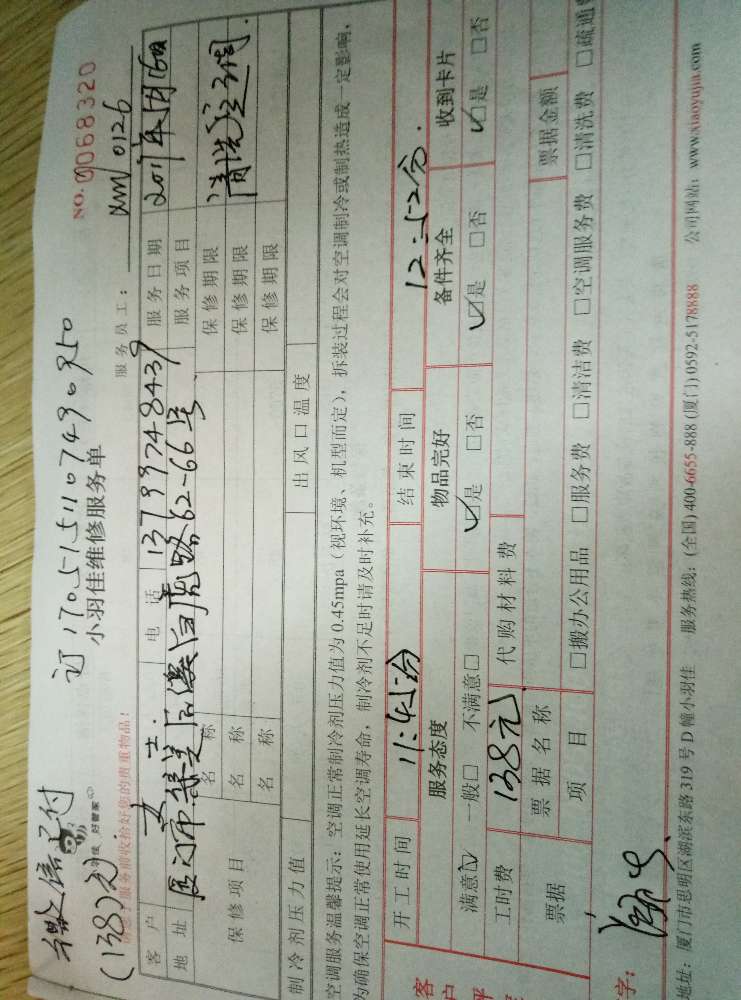 微信已付
订1705151107490850
(138元)
小羽佳维修服务单
NO. 0068320
小羽佳 好管家
服务员工: xm0126
请您于服务前收拾好您的贵重物品!
客户 女士. 电话 13799748439 服务日期 2017年5月16日
地址 厦门市集美区后溪白虎路62-66号 服务项目 清洗空调.
保修项目
名称 保修期限
名称 保修期限
名称 保修期限
制冷剂压力值 出风口温度
空调服务温馨提示: 空调正常制冷剂压力值为0.45mpa (视环境、机型而定), 拆装过程会对空调制冷或制热造成一定影响,
为确保空调正常使用延长空调寿命, 制冷剂不足时请及时补充。
开工时间 11:45分 结束时间 12:52分.
客户评
服务态度 物品完好 备件齐全 收到卡片
满意☑ 一般□ 不满意□ ☑是 □否 ☑是 □否 ☑是 □否
工时费 138元 代购材料费
票据 票据名称 票据金额
项目 □搬办公用品 □服务费 □清洁费 □空调服务费 □清洗费 □疏通费
字:
地址: 厦门市思明区湖滨东路319号D幢小羽佳 服务热线: (全国) 400-6655-888 (厦门) 0592-5178888 公司网站: www.xiaoyujia.com